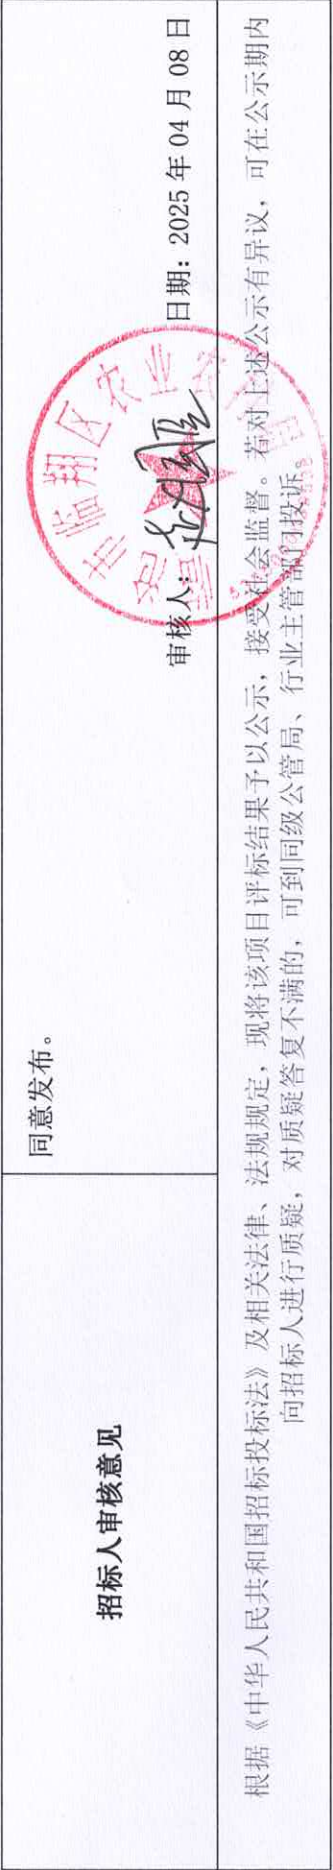 招标人审核意见
同意发布。
审核人：
日期：2025 年 04 月 08 日
市临翔区农业农
根据《中华人民共和国招标投标法》及相关法律、法规规定，现将该项目评标结果予以公示，接受社会监督。若对上述公示有异议，可在公示期内
向招标人进行质疑，对质疑答复不满的，可到同级公管局、行业主管部门投诉。